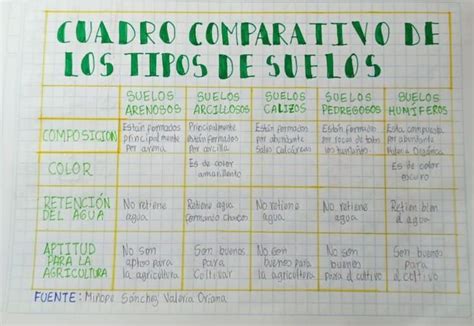 CUADRO COMPARATIVO DE
LOS TIPOS DE SUELOS
SUELOS ARENOSOS
SUELOS ARCILLOSOS
SUELOS CALIZOS
SUELOS PEDREGOSOS
SUELOS HUMÍFEROS
COMPOSICION
Están formados
principalmente
por arena
Principalmente
están formados
por arcilla
Están formados
por abundante
Sales Calcáreas
Están formado
por rocas de todos
los tamaños
Esta compuesta
por abundante
COLOR
Es de color
amarillento
Es de color
oscuro
RETENCIÓN
DEL AGUA
No retiene
agua
Retiene agua
formando charcos
No retiene
agua
No retiene
agua
Retien bien
el agua
APTITUD
PARA LA
AGRICULTURA
No son
aptos para
la agricultura
Son buenos
para
Cultivar
No son
buenos para
la agricultura
No son
buenos
para el cultivo
Son buenos
para
el cultivo
FUENTE: Miñope Sánchez Valeria Oriana